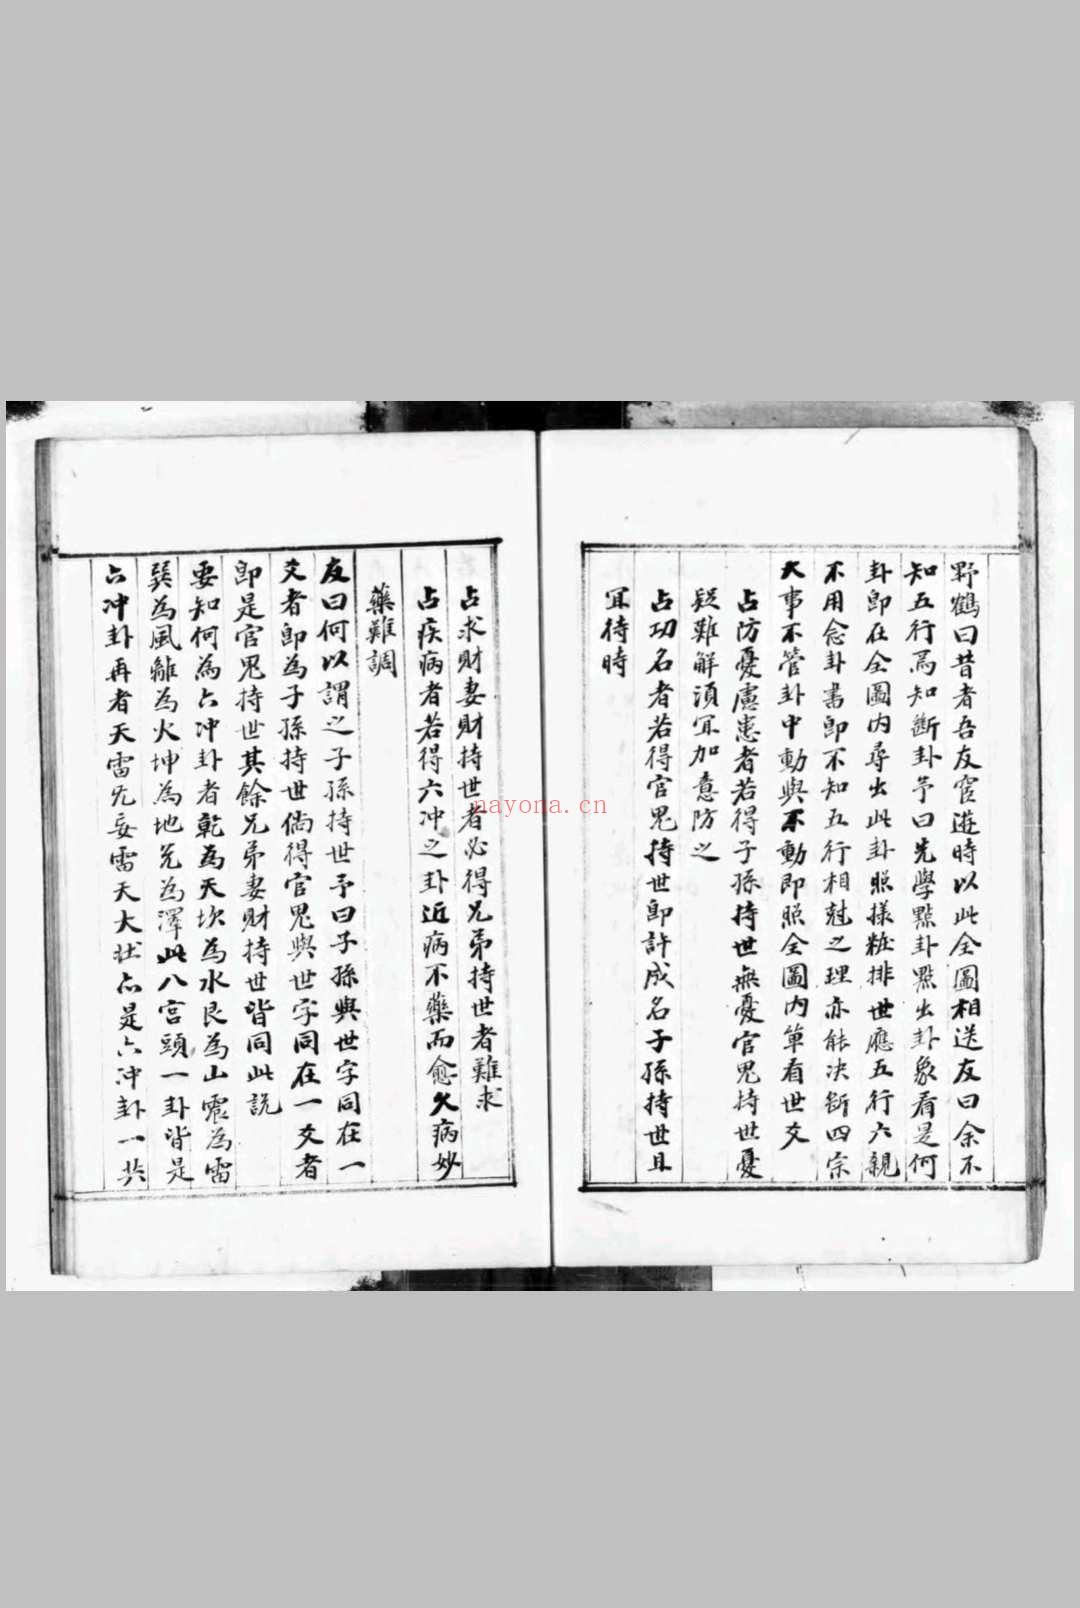 野鶴曰昔者吾友宦遊時以此全圖相送友曰余不
知五行焉知斷卦予曰先學點卦點出卦象看是何
卦即在全圖内尋出此卦照樣粧排世應五行六親
不用念卦書即不知五行相尅之理亦能決斷四宗
大事不管卦中動與不動即照全圖内单看世爻
占防憂慮患者若得子孫持世無憂官鬼持世憂
疑難解須冝加意防之
占功名者若得官鬼持世即許成名子孫持世且
冝待時
占求財妻財持世者必得兄弟持世者難求
占疾病者若得六冲之卦近病不藥而愈久病妙
藥難調
友曰何以謂之子孫持世予曰子孫與世字同在一
爻者即為子孫持世倘得官鬼與世字同在一爻者
即是官鬼持世其餘兄弟妻財持世皆同此説
要知何為六冲卦者乾為天坎為水艮為山震為雷
巽為風離為火坤為地兌為澤此八宫頭一卦皆是
六冲卦再者天雷无妄雷天大壯亦是六冲卦一共
nayona.cn